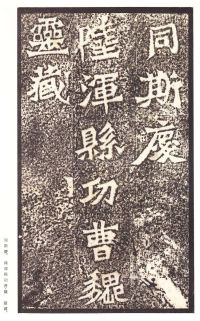 同斯慶
陸渾縣功曹魏
靈藏